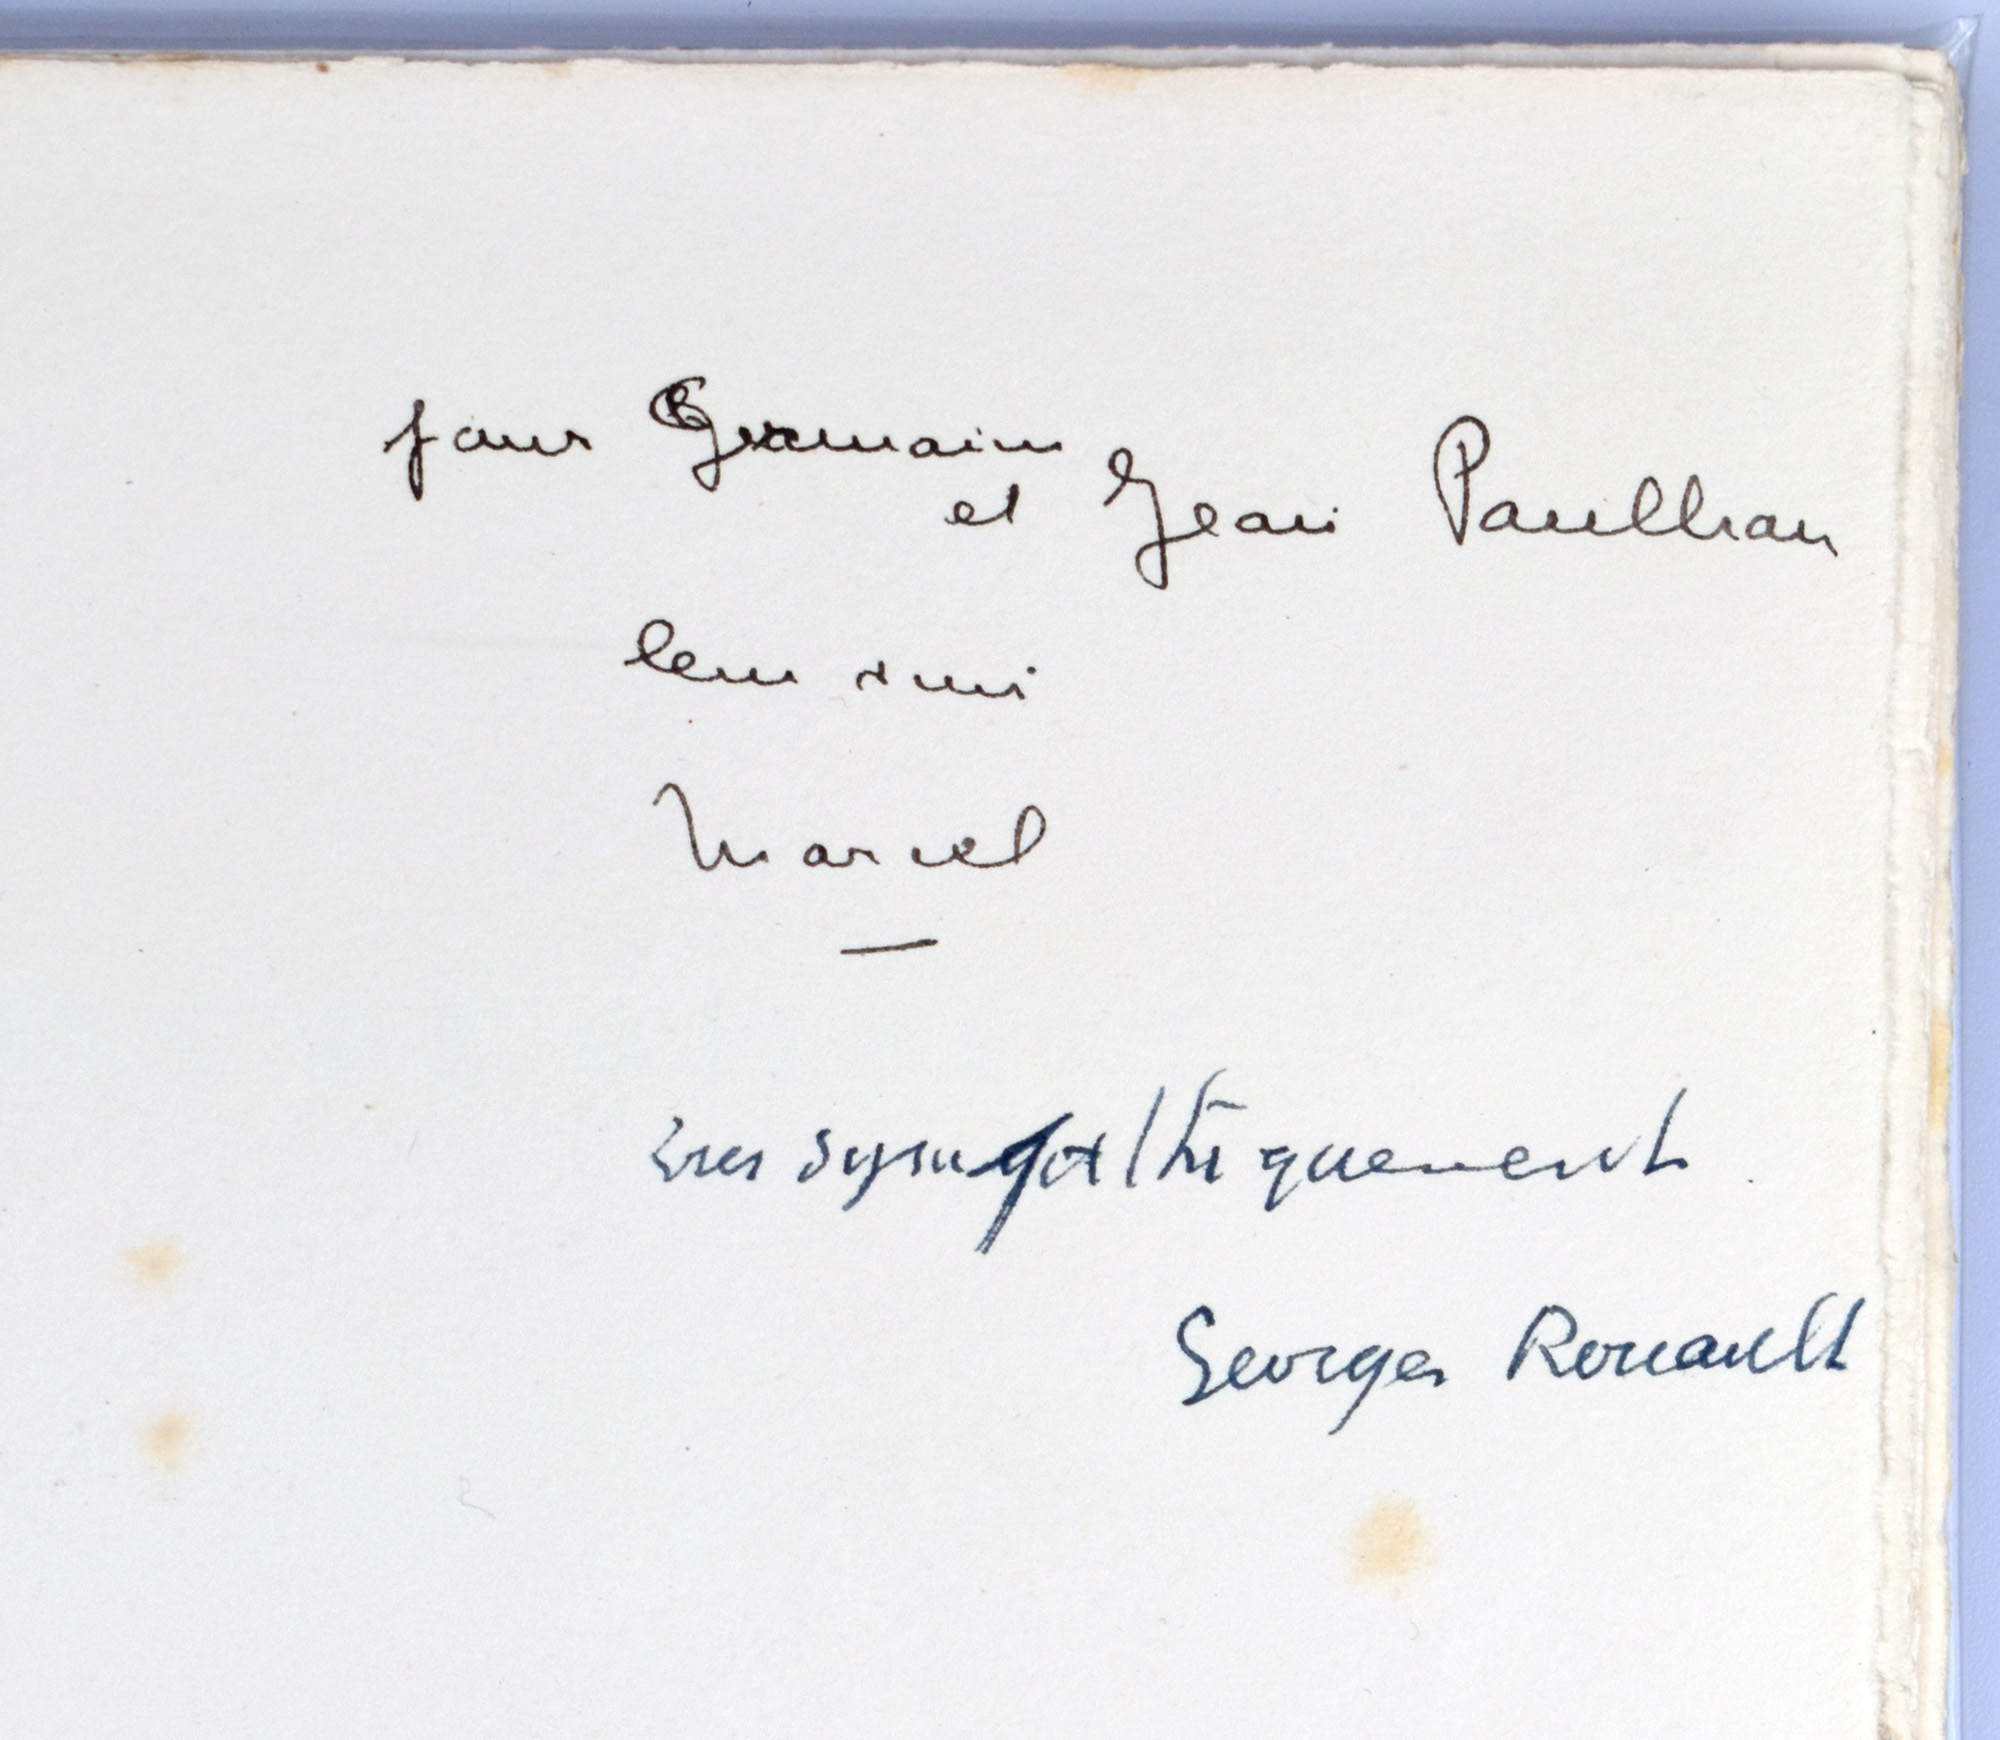 pour Germaine
et Jean Paulhan
leur ami
Marcel
très sympathiquement
Georges Rouault